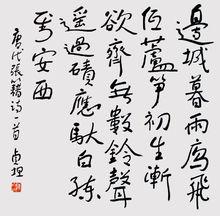 邊城暮雨雁飛
低蘆筍初生漸
欲齊無數鈴聲
遙過磧應馱白練
到安西
唐代張籍詩一首 貞